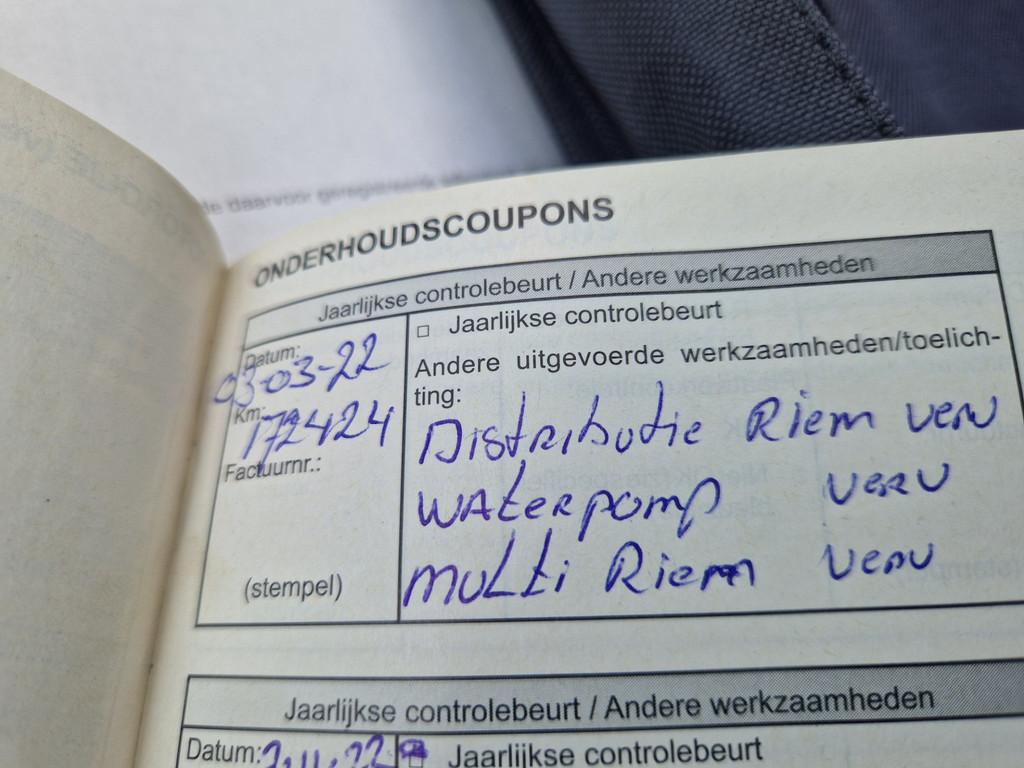 ONDERHOUDSCOUPONS
Jaarlijkse controlebeurt / Andere werkzaamheden
Datum:
03-03-22
Km:
172424
Factuurnr.:
(stempel)
□ Jaarlijkse controlebeurt
Andere uitgevoerde werkzaamheden/toelich-
ting:
Distributie Riem verv
waterpomp verv
multi Riem verv
Jaarlijkse controlebeurt / Andere werkzaamheden
Datum:
Jaarlijkse controlebeurt